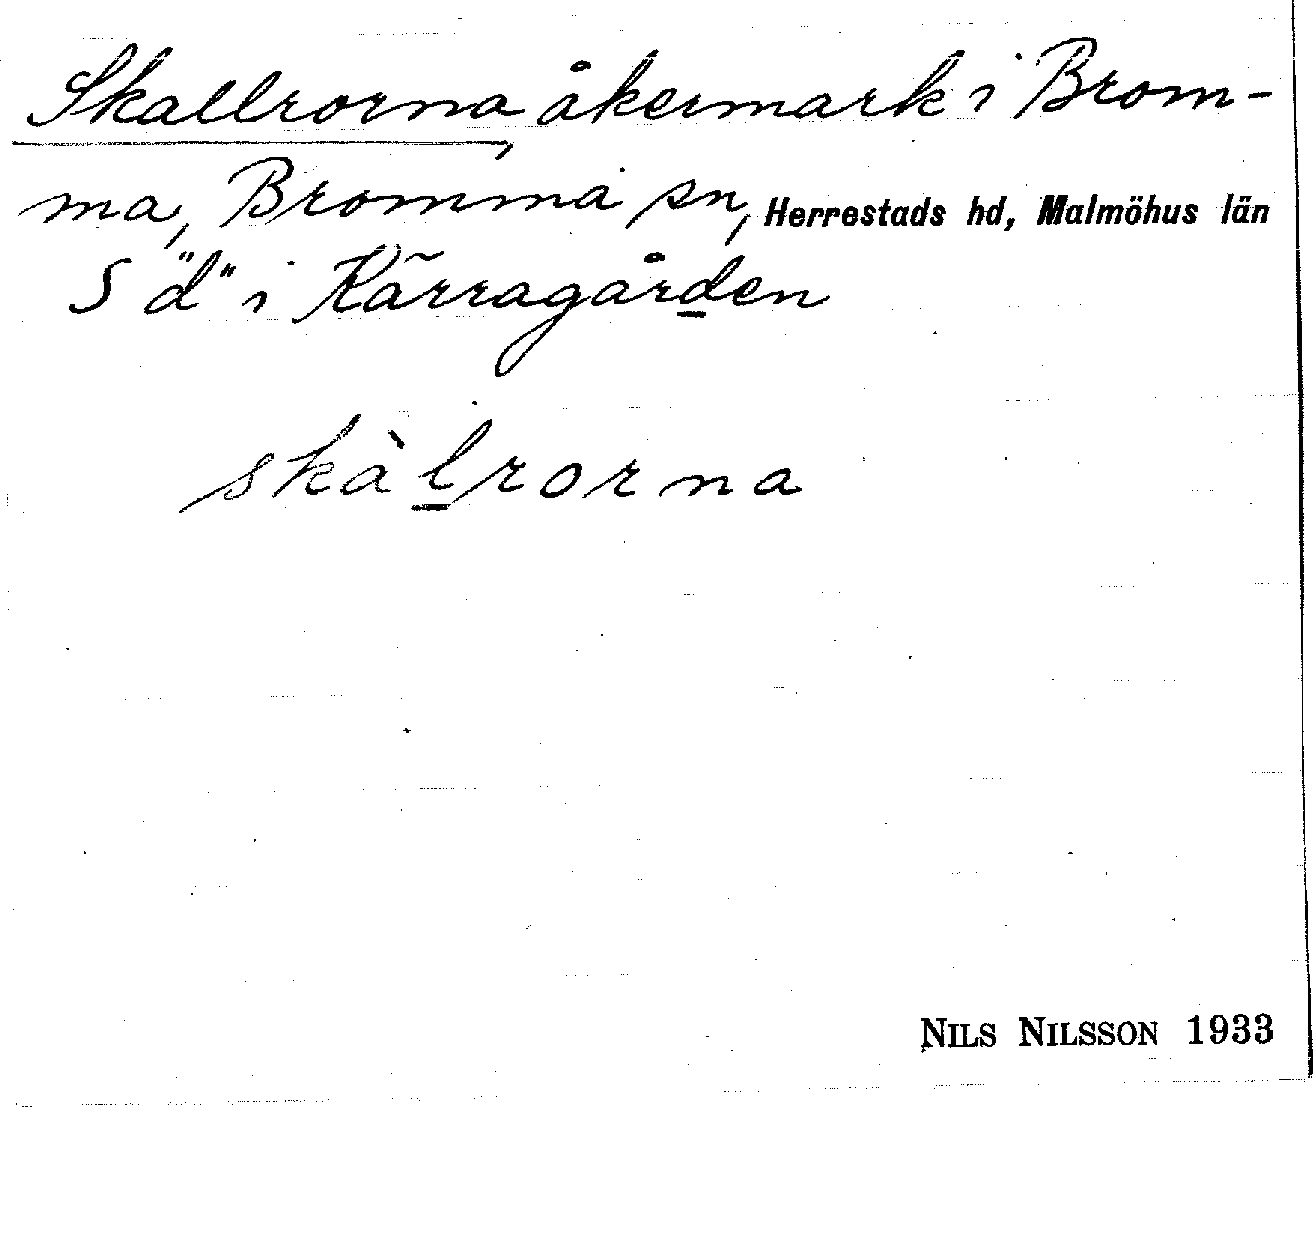 Skallrorna, åkermark i Brom-
ma, Bromma sn, Herrestads hd, Malmöhus län
S "d" i Kärragården
skàlrorna
NILS NILSSON 1933